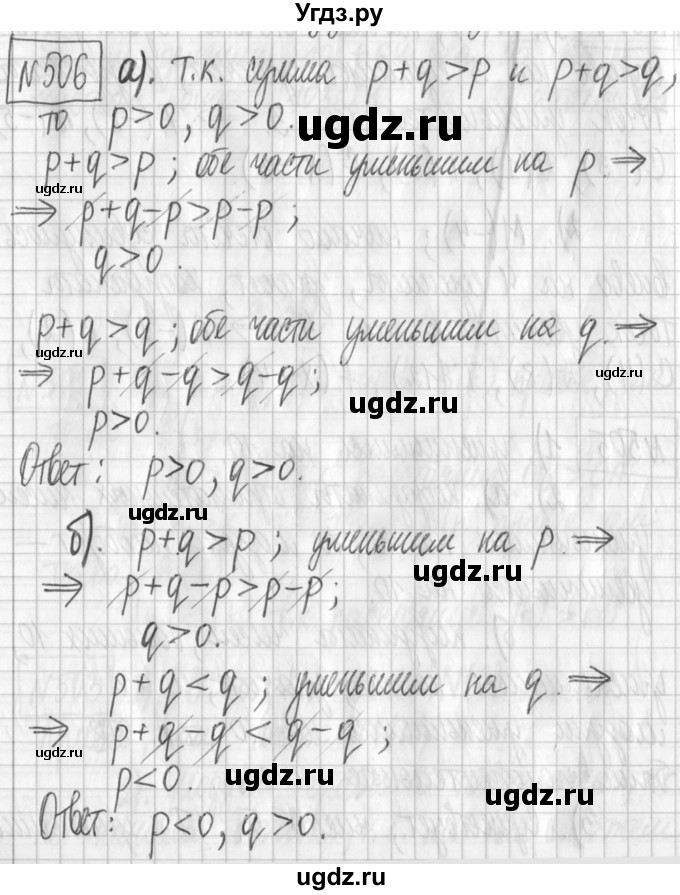 Угдз.ру
№506 а). Т.к. сумма p+q>p и p+q>q,
то p>0, q>0.
ugdz.ru
p+q>p; обе части уменьшим на p. ⇒
ugdz.ru
⇒ p+q-p>p-p;
q>0.
p+q>q; обе части уменьшим на q. ⇒
ugdz.ru
⇒ p+q-q>q-q;
ugdz.ru
ugdz.ru
p>0.
Ответ: p>0, q>0.
ugdz.ru
б). p+q>p; уменьшим на p. ⇒
ugdz.ru
⇒ p+q-p>p-p;
q>0.
p+q<q; уменьшим на q. ⇒
⇒ p+q-q<q-q;
ugdz.ru
p<0.
ugdz.ru
ugdz.ru
Ответ: p<0, q>0.